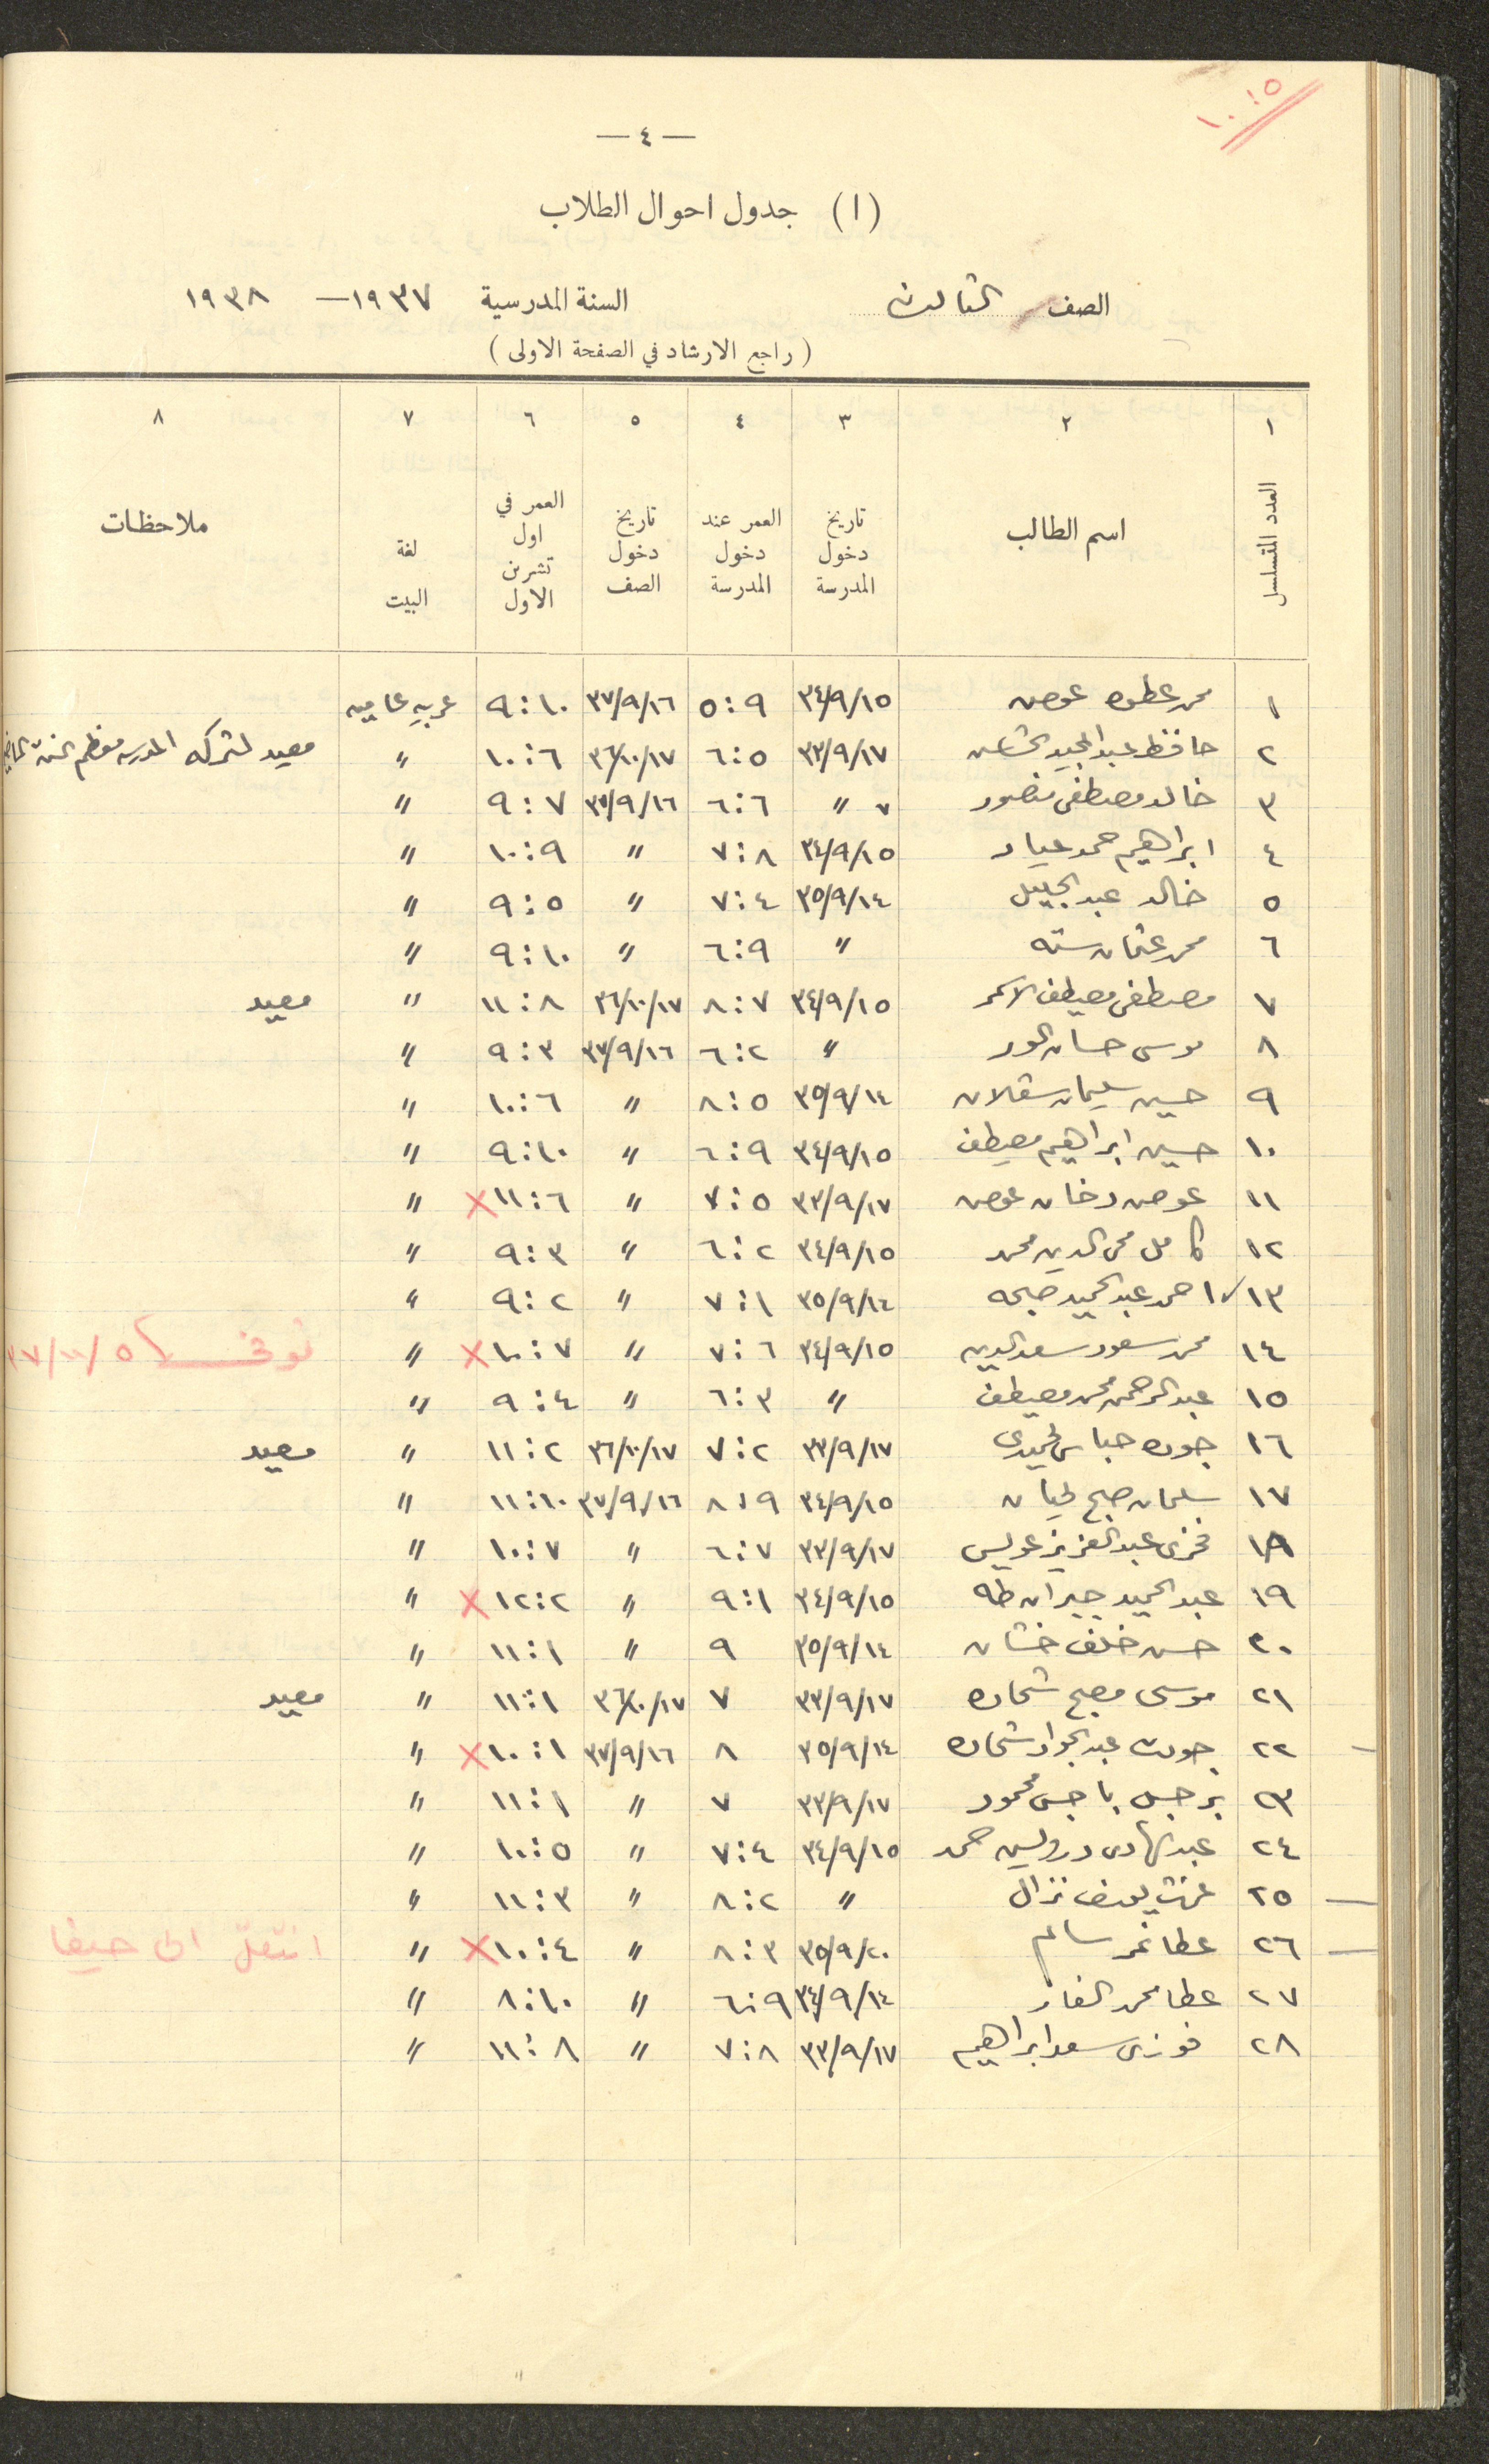 ١٠:٥
— ٤ —
(١) جدول احوال الطلاب
الصف الثالث السنة المدرسية ١٩٣٧ — ١٩٣٨
(راجع الارشاد في الصفحة الاولى)
١ ٢ ٣ ٤ ٥ ٦ ٧ ٨
العدد المتسلسل اسم الطالب تاريخ دخول المدرسة العمر عند دخول المدرسة تاريخ دخول الصف العمر في اول تشرين الاول لغة البيت ملاحظات
١ محمد عطوه عوض ٣٤/٩/١٥ ٥:٩ ٣٧/٩/١٦ ٩:١٠ عربيه عاميه
٢ حافظ عبد المجيد ٣٣/٩/١٧ ٦:٥ ٣٦/١٠/١٧ ١٠:٦ " معيد لتركه المدرسه معظم السنة الماضيه
٣ خالد مصطفى منصور " ٦:٦ ٣٧/٩/١٦ ٩:٧ "
٤ ابراهيم حمد عياد ٣٤/٩/١٥ ٧:٨ " ١٠:٩ "
٥ خالد عبد الجليل ٣٥/٩/١٤ ٧:٤ " ٩:٥ "
٦ محمد عثمان سته " ٦:٩ " ٩:١٠ "
٧ مصطفى مصيطف الاسمر ٣٤/٩/١٥ ٨:٧ ٣٦/١٠/١٧ ١١:٨ " معيد
٨ موسى حسان " ٦:٢ ٣٧/٩/١٦ ٩:٣ "
٩ حسين سليمان سقلان ٣٥/٩/١٤ ٨:٥ " ١٠:٦ "
١٠ حسين ابراهيم مصيطف ٣٤/٩/١٥ ٦:٩ " ٩:١٠ "
١١ عوض دخان عوض ٣٣/٩/١٧ ٧:٥ " ١١:٦ × "
١٢ كامل محي الدين محمد ٣٤/٩/١٥ ٦:٢ " ٩:٣ "
١٣ احمد عبد الحميد صبحه ٣٥/٩/١٤ ٧:١ " ٩:٢ "
١٤ محمد سعود سعد الدين ٣٤/٩/١٥ ٧:٦ " ١٠:٧ × " توفي ٣٧/١١/٥
١٥ عبد الرحمن محمد مصيطف " ٦:٣ " ٩:٤ "
١٦ جوده حباس لحميدى ٣٣/٩/١٧ ٧:٢ ٣٦/١٠/١٧ ١١:٢ " معيد
١٧ سلمان صبح لحيان ٣٤/٩/١٥ ٨:٩ ٣٧/٩/١٦ ١١:١٠ "
١٨ فخرى عبد العزيز عويس ٣٣/٩/١٧ ٦:٧ " ١٠:٧ "
١٩ عبد الحميد جبران طه ٣٤/٩/١٥ ٩:١ " ١٢:٢ × "
٢٠ حسن خلف خشان ٣٥/٩/١٤ ٩ " ١١:١ "
٢١ موسى مصبح شحاده ٣٣/٩/١٧ ٧ ٣٦/١٠/١٧ ١١:١ " معيد
٢٢ جودت عبد الجواد شحاده ٣٥/٩/١٤ ٨ ٣٧/٩/١٦ ١٠:١ × "
٢٣ برجس باجس محمود ٣٣/٩/١٧ ٧ " ١١:١ "
٢٤ عبد الهادى درويش حمد ٣٤/٩/١٥ ٧:٤ " ١٠:٥ "
٢٥ عزت يوسف نزال " ٨:٢ " ١١:٣ "
٢٦ عطا نمر سالم ٣٥/٩/٢٠ ٨:٣ " ١٠:٤ × " انتقل الى حيفا
٢٧ عطا محمد الفار ٣٤/٩/١٤ ٦:٩ " ٨:١٠ "
٢٨ فوزى سعد ابراهيم ٣٣/٩/١٧ ٧:٨ " ١١:٨ "